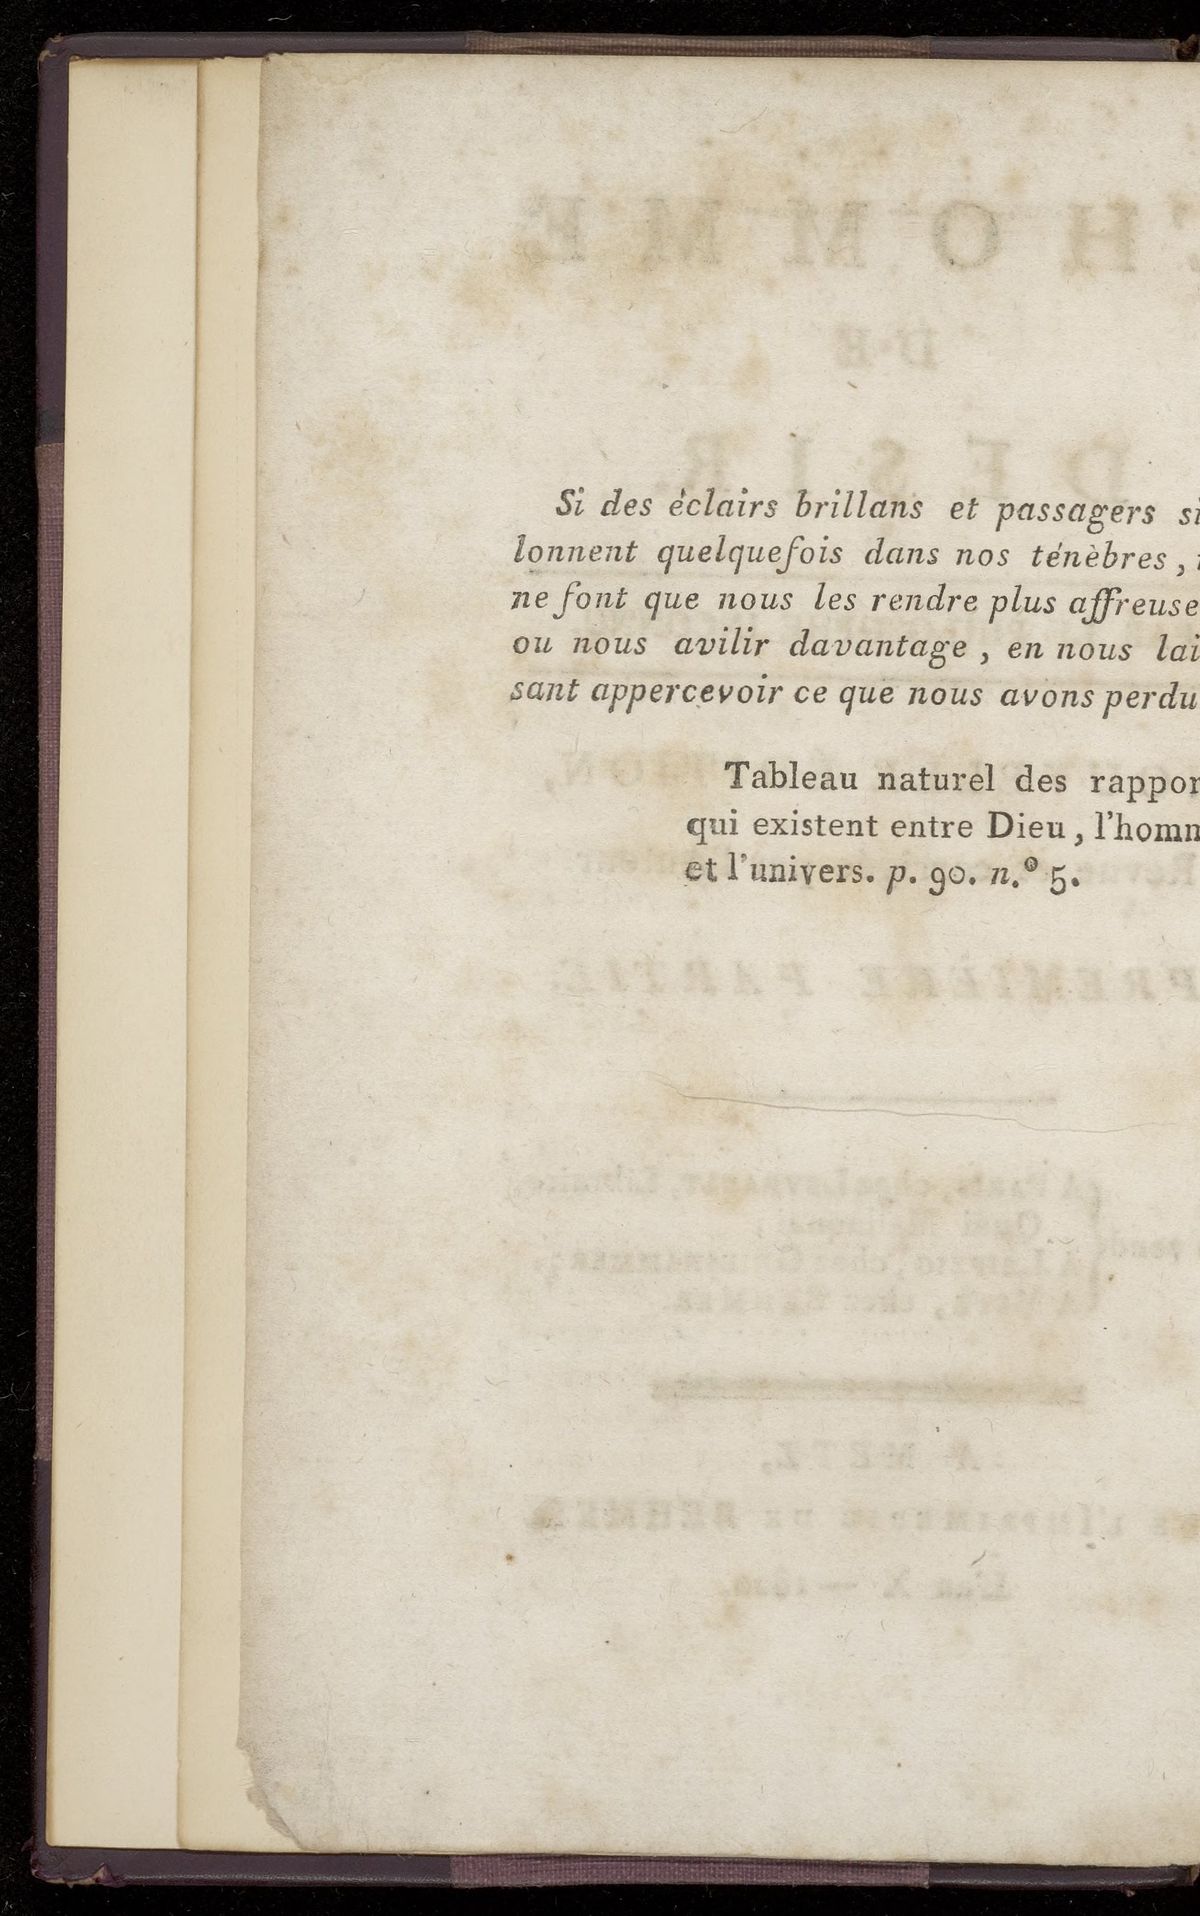 Si des éclairs brillans et passagers si
lonnent quelquefois dans nos ténèbres,
ne font que nous les rendre plus affreuse
ou nous avilir davantage, en nous lai
sant appercevoir ce que nous avons perdu
Tableau naturel des rappor
qui existent entre Dieu, l'homm
et l'univers. p. 90. n.º 5.